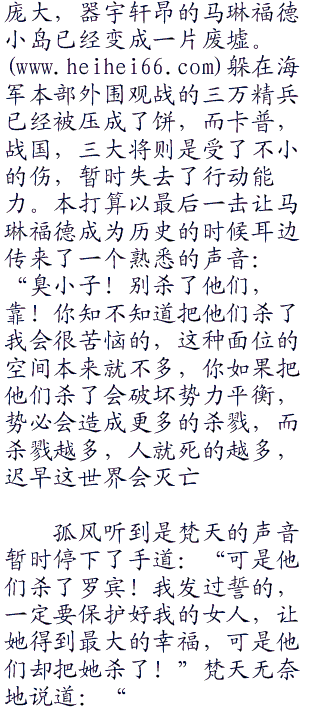 庞大，器宇轩昂的马琳福德
小岛已经变成一片废墟。
(www.heihei66.com)躲在海
军本部外围观战的三万精兵
已经被压成了饼，而卡普，
战国，三大将则是受了不小
的伤，暂时失去了行动能
力。本打算以最后一击让马
琳福德成为历史的时候耳边
传来了一个熟悉的声音：
“臭小子！别杀了他们，
靠！你知不知道把他们杀了
我会很苦恼的，这种面位的
空间本来就不多，你如果把
他们杀了会破坏势力平衡，
势必会造成更多的杀戮，而
杀戮越多，人就死的越多，
迟早这世界会灭亡
孤风听到是梵天的声音
暂时停下了手道：“可是他
们杀了罗宾！我发过誓的，
一定要保护好我的女人，让
她得到最大的幸福，可是他
们却把她杀了！”梵天无奈
地说道：“